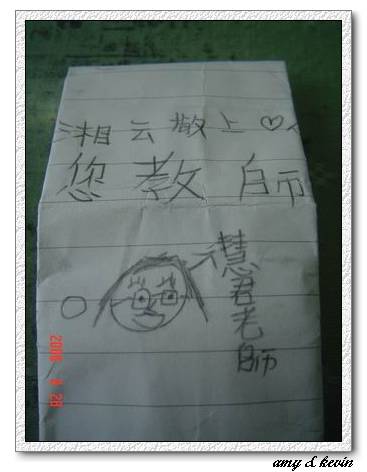 湘云敬上♡
您教師
慧君老師
2006 9 28
amy & kevin